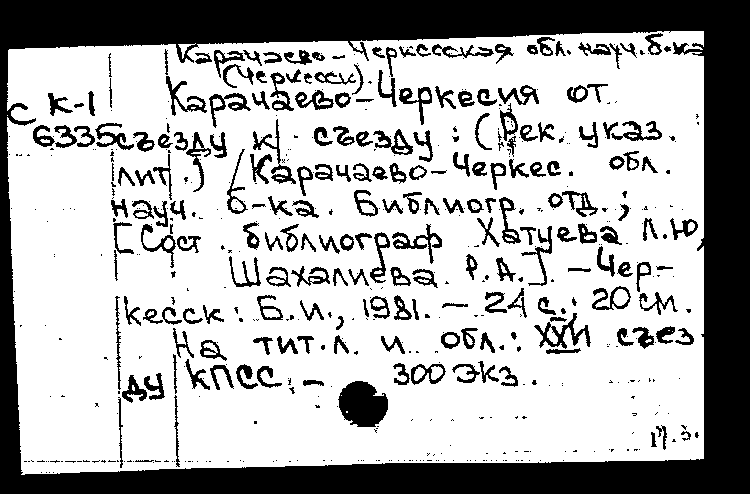 Карачаево-Черкесская обл. науч. б-ка
(Черкесск).
С К-1 Карачаево-Черкесия от
6335 съезду к съезду : (Рек. указ.
лит.) / Карачаево-Черкес. обл.
науч. б-ка. Библиогр. отд. ;
[Сост. библиограф Хатуева Л.Ю,
Шахалиева Р.А.]. — Чер-
кесск : Б.И., 1981. — 24 с.; 20 см.
На тит. л. и обл.: XXVI съез-
ду КПСС. — 300 экз.
17.3.